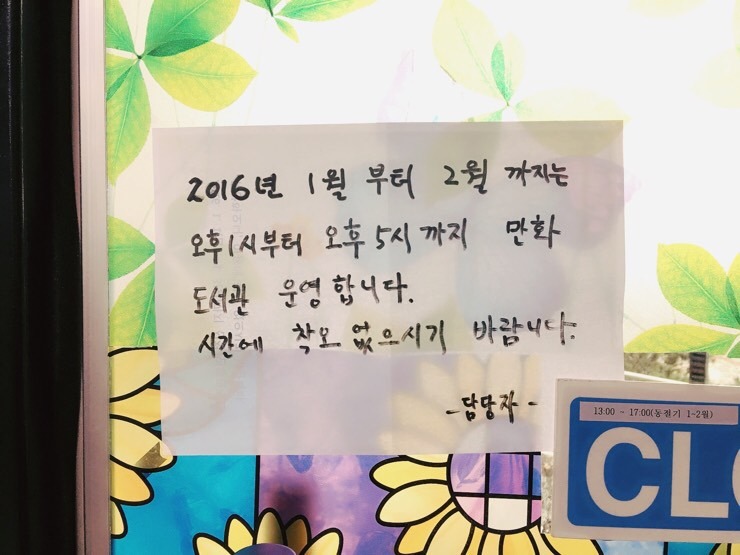 2016년 1월 부터 2월 까지는
오후1시부터 오후5시까지 만화
도서관 운영합니다.
시간에 착오 없으시기 바랍니다.
-담당자-
13:00 - 17:00(동절기 1-2월)
CL